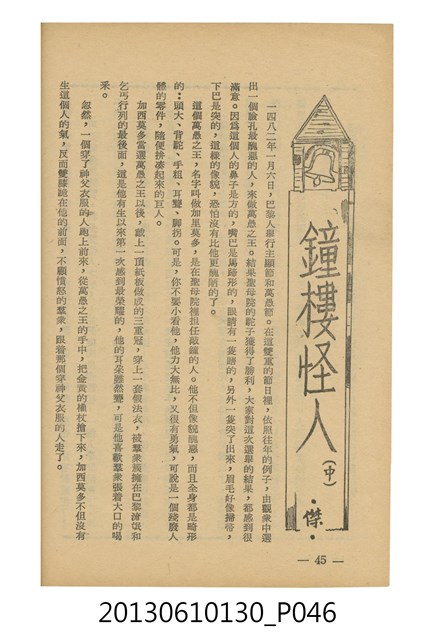 鐘樓怪人(中)
·傑·
一四八二年一月六日,巴黎人舉行主顯節和萬愚節。在這雙重的節日裡,依照往年的例子,由觀衆中選
出一個臉孔最醜惡的人,來做萬愚之王。結果聖母院的駝子獲得了勝利,大家對這次選舉的結果,都感到很
滿意。因爲這個人的鼻子是方的,嘴巴是馬蹄形的,眼睛有一隻瞎的,另外一隻突了出來,眉毛好像掃帚,
下巴是突的,這樣的像貌,恐怕沒有比他更醜陋的了。
這個萬愚之王,名字叫做加里莫多,是在聖母院裡担任敲鐘的人。他不但像貌醜惡,而且全身都是畸形
的:頭大、背駝、手粗、耳聾、脚拐。可是,你不要小看他,他力大無比,又很有勇氣,可說是一個殘廢人
體的零件,隨便拼凑起來的巨人。
加西莫多當選萬愚之王以後,戴上一頂紙板做成的三重冠,穿上一套假法衣,被羣衆簇擁在巴黎流氓和
乞丐行列的最後面,這是他有生以來第一次感到最榮耀的,他的耳朵雖然聾,可是他喜歡羣衆張着大口的喝
釆。
忽然,一個穿了神父衣服的人跑上前來,從萬愚之王的手中,把金黃的權杖搶下來,加西莫多不但沒有
生這個人的氣,反而雙膝跪在他的前面,不顧憤怒的羣衆,跟着那個穿神父衣服的人走了。
— 45 —
20130610130_P046